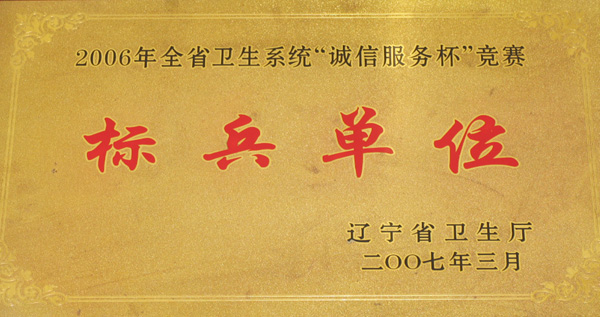 2006年全省卫生系统“诚信服务杯”竞赛
标兵单位
辽宁省卫生厅
二〇〇七年三月